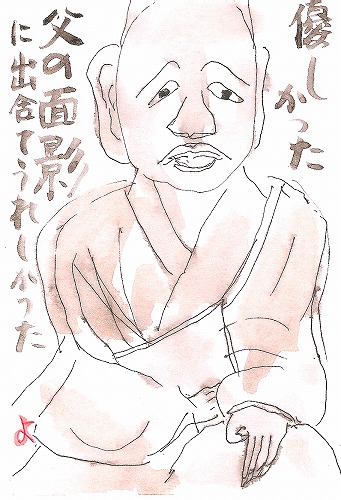 優しかった
父の面影
に出合てうれしかった
よ